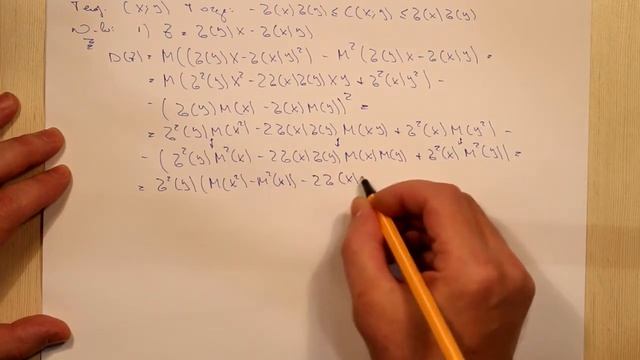 Теор. (x;y) Тогда: -σ(x)σ(y) ≤ C(x;y) ≤ σ(x)σ(y)
1) Z = σ(y)x - σ(x)y
D(Z) = M((σ(y)x - σ(x)y)²) - M²(σ(y)x - σ(x)y) =
= M(σ²(y)x² - 2σ(x)σ(y)xy + σ²(x)y²) -
- (σ(y)M(x) - σ(x)M(y))² =
= σ²(y)M(x²) - 2σ(x)σ(y)M(xy) + σ²(x)M(y²) -
- (σ²(y)M²(x) - 2σ(x)σ(y)M(x)M(y) + σ²(x)M²(y)) =
= σ²(y)(M(x²) - M²(x)) - 2σ(x)